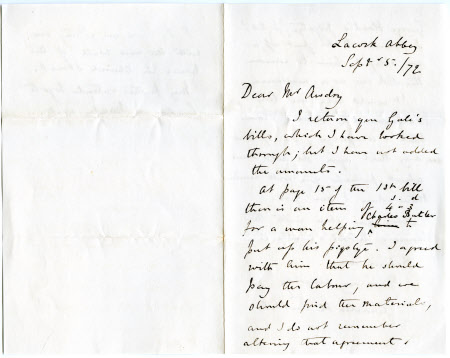 Lacock Abbey
Sept 5./72
Dear Mr Awdry
I return you Gale's
bills, which I have looked
through; but I have not added
the amounts.
At page 15 of the 1st bill
s. d
there is an item of 4-3
Charles Butler
for a man helping him to
put up his pigstye. I agreed
with him that he should
pay the labour, and we
should find the materials,
and I do not remember
altering that agreement.